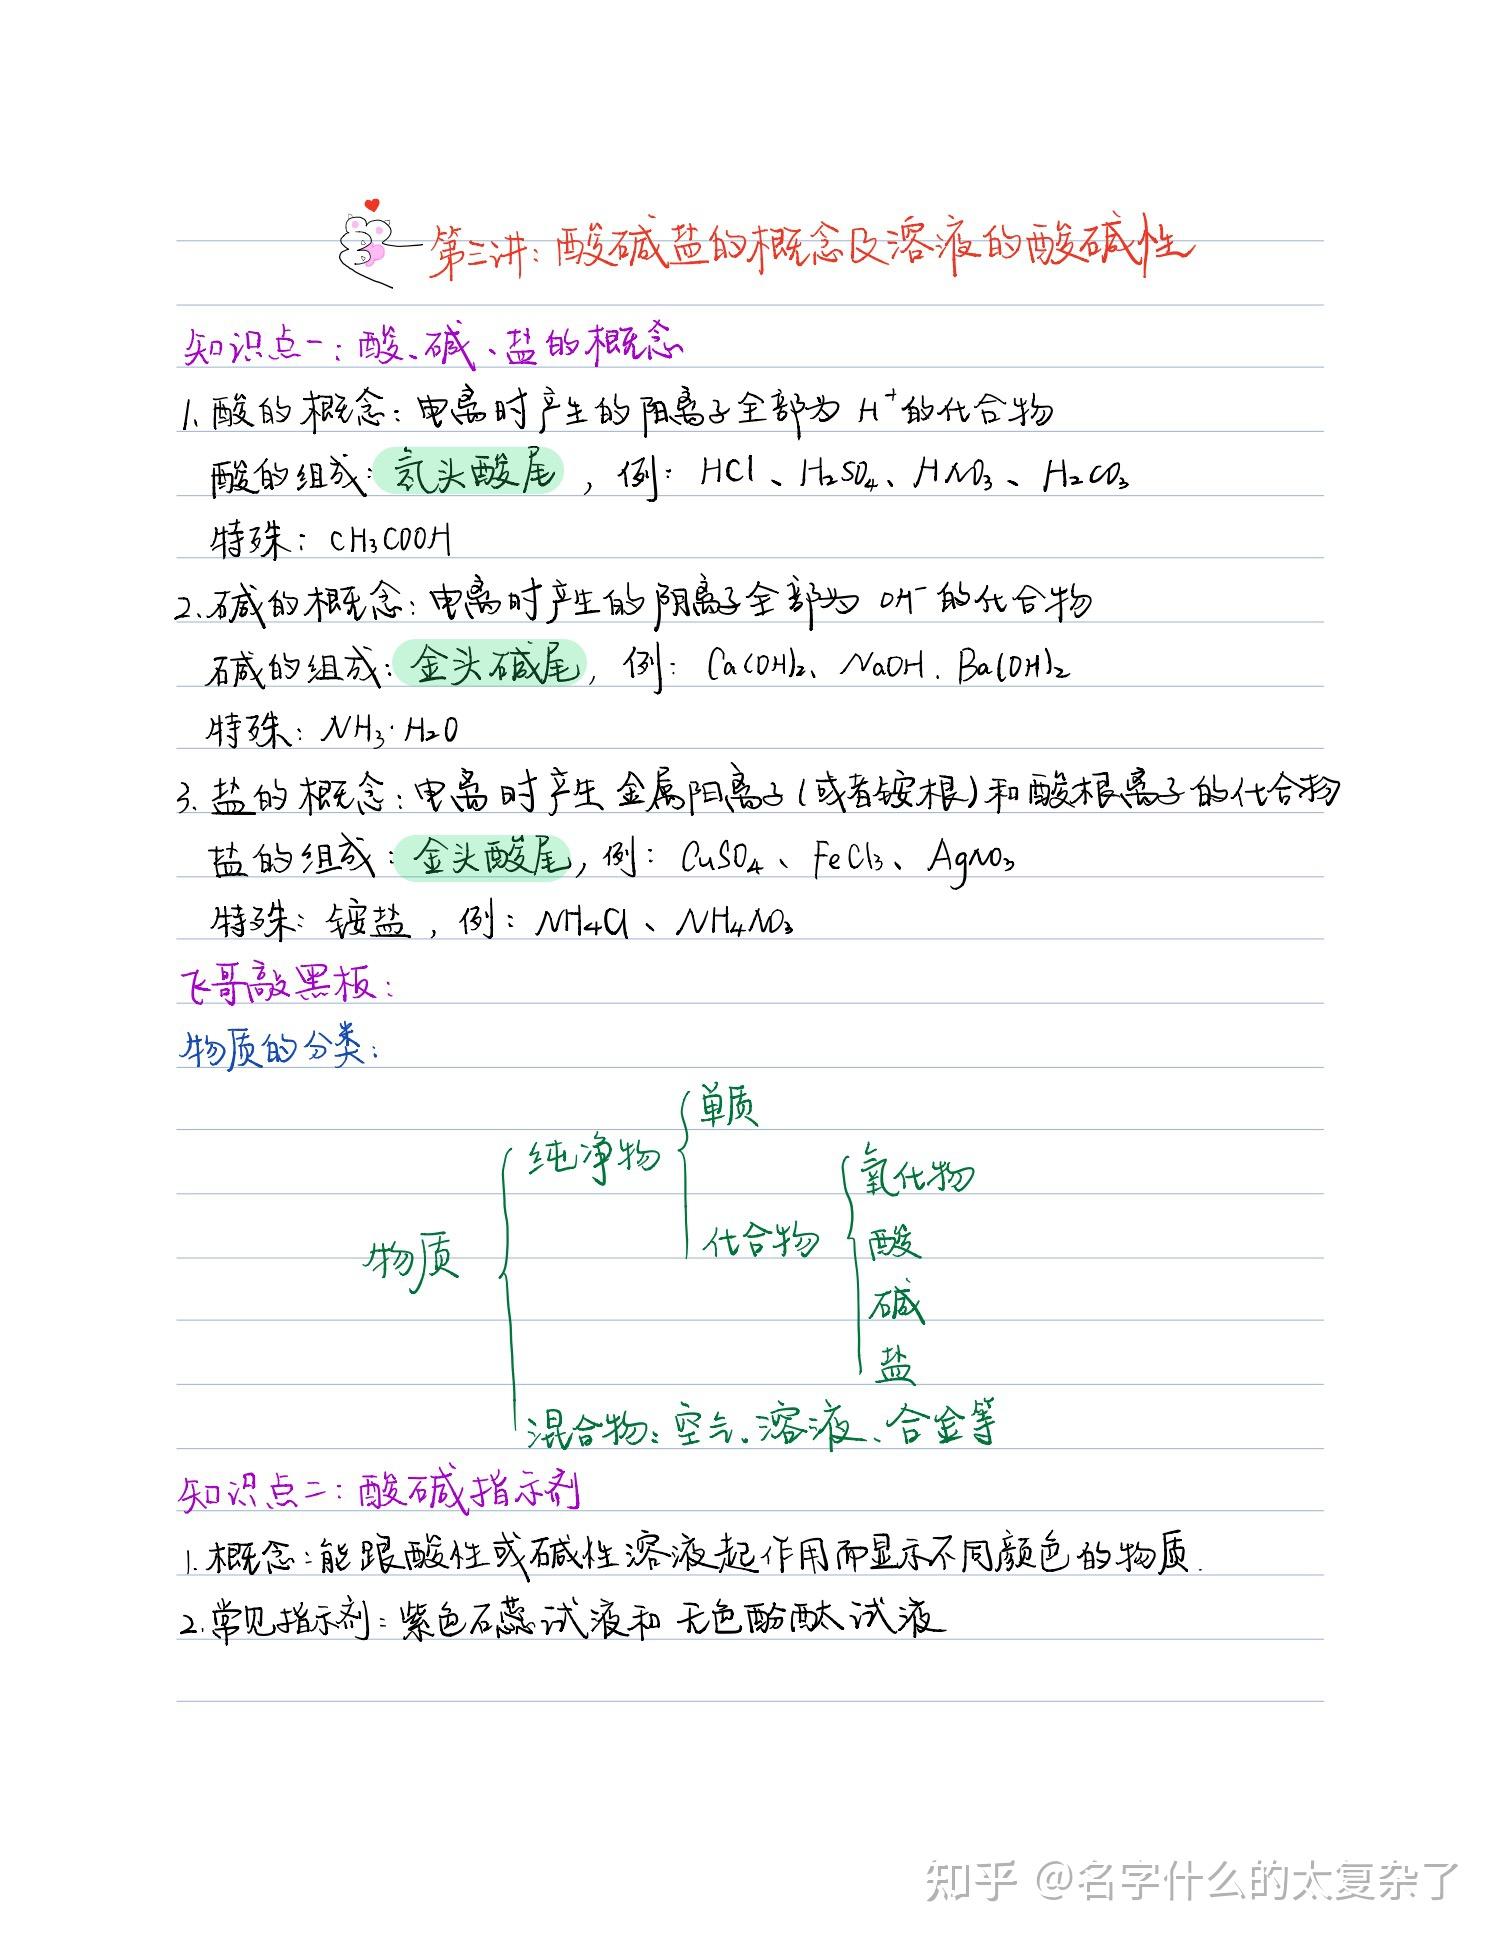 第三讲：酸碱盐的概念及溶液的酸碱性
知识点一：酸、碱、盐的概念
1. 酸的概念：电离时产生的阳离子全部为 H⁺的化合物
酸的组成：氢头酸尾，例：HCl、H₂SO₄、HNO₃、H₂CO₃
特殊：CH₃COOH
2. 碱的概念：电离时产生的阴离子全部为 OH⁻的化合物
碱的组成：金头碱尾，例：Ca(OH)₂、NaOH、Ba(OH)₂
特殊：NH₃·H₂O
3. 盐的概念：电离时产生金属阳离子(或者铵根)和酸根离子的化合物
盐的组成：金头酸尾，例：CuSO₄、FeCl₃、AgNO₃
特殊：铵盐，例：NH₄Cl、NH₄NO₃
飞哥敲黑板：
物质的分类：
单质
纯净物
氧化物
化合物
酸
物质
碱
盐
混合物：空气、溶液、合金等
知识点二：酸碱指示剂
1. 概念：能跟酸性或碱性溶液起作用而显示不同颜色的物质.
2. 常见指示剂：紫色石蕊试液和无色酚酞试液
知乎 @名字什么的太复杂了